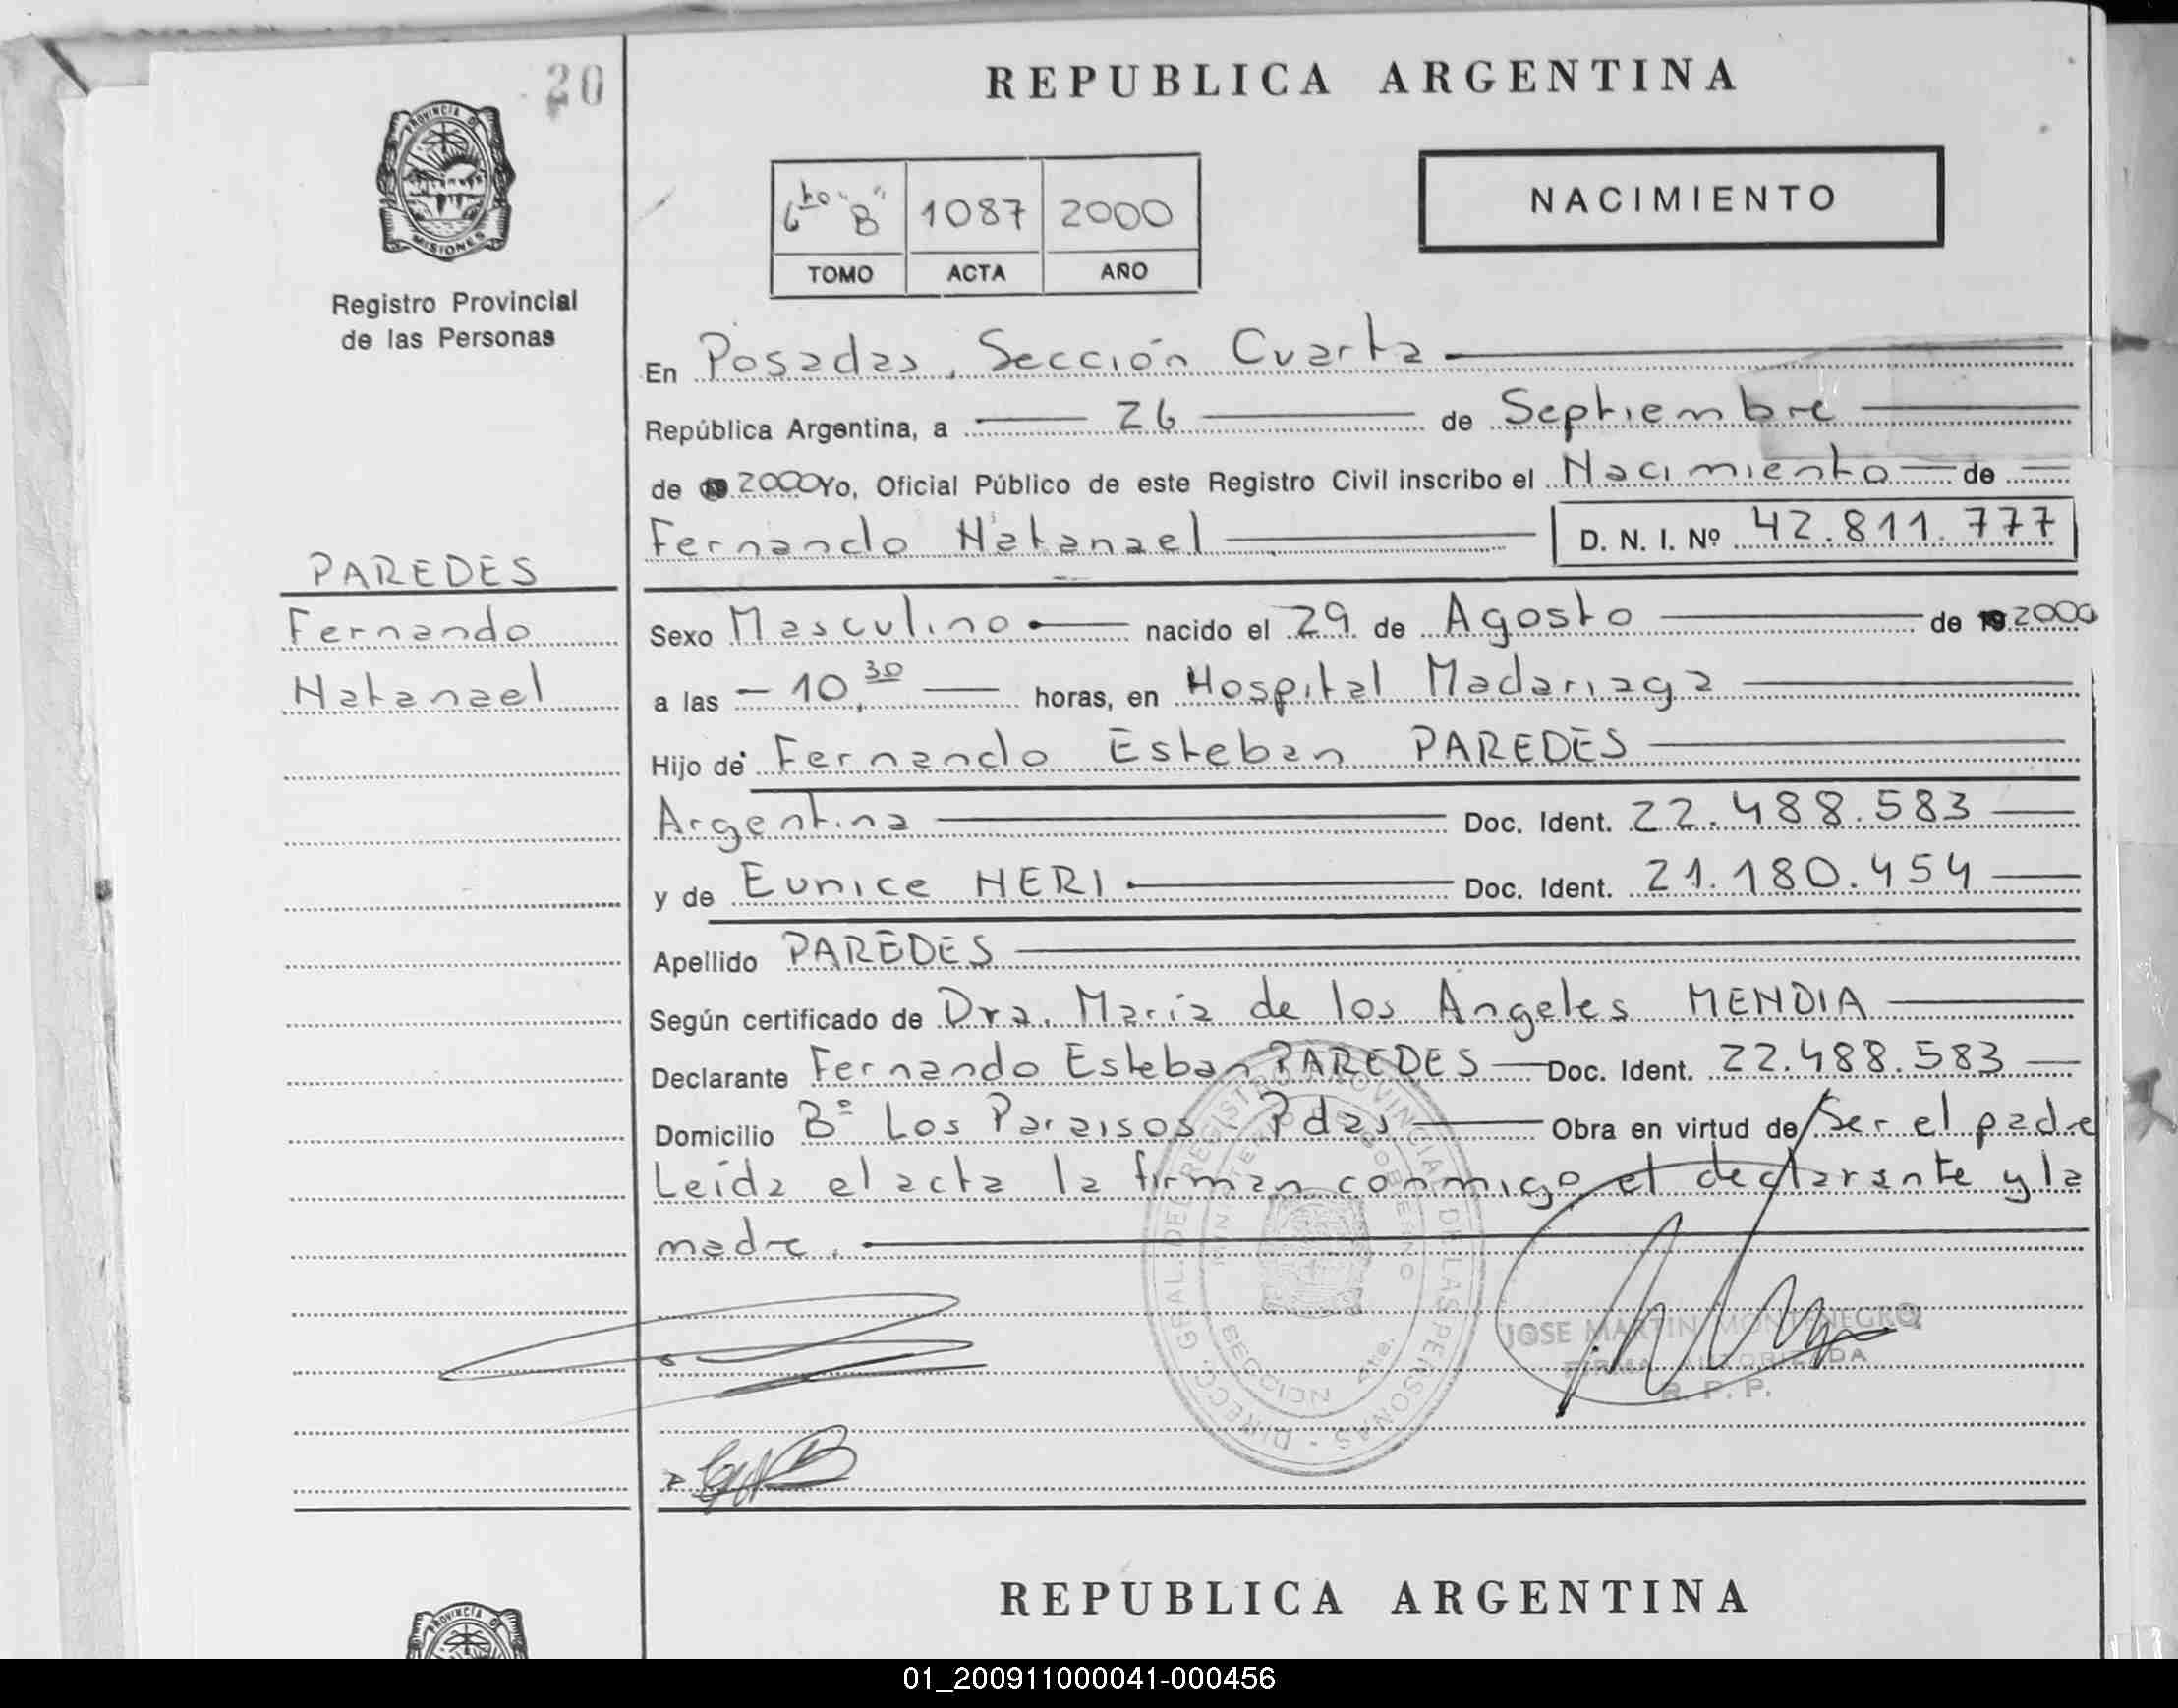 20
REPUBLICA ARGENTINA
PROVINCIA DE
MISIONES
Registro Provincial
de las Personas
6to "B" 1087 2000
TOMO ACTA AÑO
NACIMIENTO
En Posadas, Sección Cuarta
República Argentina, a 26 de Septiembre
de 2000 Yo, Oficial Público de este Registro Civil inscribo el Nacimiento de
Fernando Natanael D. N. I. Nº 42.811.777
PAREDES
Fernando
Natanael
Sexo Masculino nacido el 29 de Agosto de 19 2000
a las 10,30 horas, en Hospital Madariaga
Hijo de Fernando Esteban PAREDES
Argentina Doc. Ident. 22.488.583
y de Eunice NERI Doc. Ident. 21.180.454
Apellido PAREDES
Según certificado de Dra. María de los Angeles MENDIA
Declarante Fernando Esteban PAREDES Doc. Ident. 22.488.583
Domicilio Bº Los Paraisos Pdas Obra en virtud de Ser el padre
Leída el acta la firman conmigo el declarante y la
madre.
DIRECC. GRAL. DEL REGISTRO PROVINCIAL DE LAS PERSONAS
MINISTERIO DE GOBIERNO
SECCION 4ta.
JOSE MARTIN MONTENEGRO
FIRMA AUTORIZADA
R. P. P.
REPUBLICA ARGENTINA
PROVINCIA DE
01_200911000041-000456